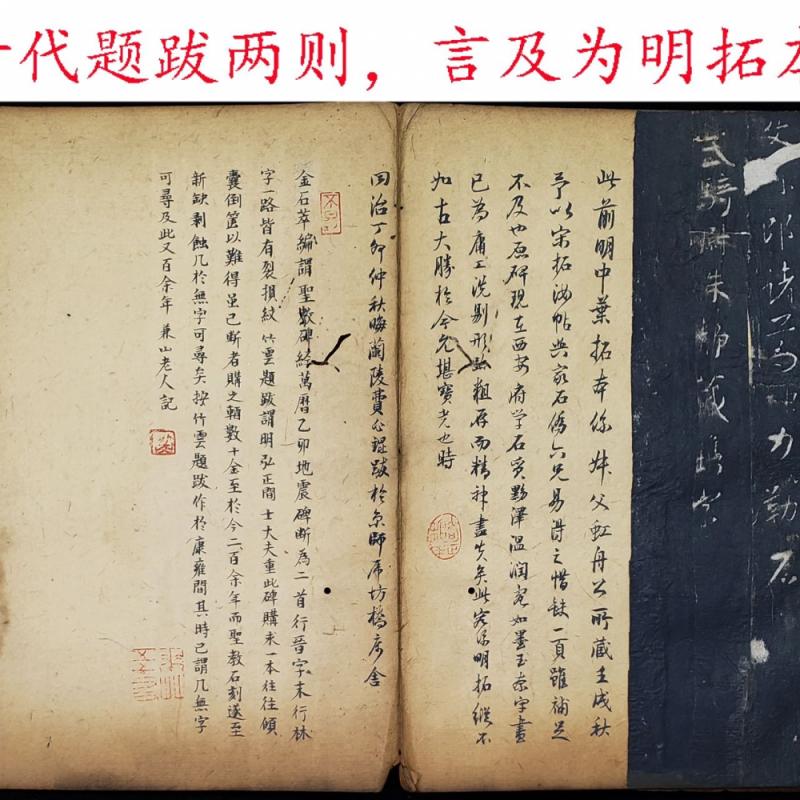 代题跋两则，言及为明拓
郎诸葛神力勒石
武骑尉朱静藏镌字
此前明中葉拓本係叔父虹舟公所藏壬戌秋
予以宋拓汝帖與家石儕六兄易得之惜缺一頁雖補足
不及也原碑現在西安府学石質黝澤温润宛如墨玉奈字畫
已為庸工洗剔形雖粗存而精神盡失矣此宛係明拓縱不
如古大勝於今允堪寶者也時
同治丁卯仲秋晦蘭陵費 跋於京師虎坊橋寓舍
金石萃編謂聖教碑終萬曆乙卯地震碑断為二首行晉字末行林
字一路皆有裂損紋竹雲題跋謂明弘正間士大夫重此碑購求一本往往傾
囊倒篋以難得虽已断者購之輒數十金至於今二百余年而聖教石刻遂至
新缺剥蝕几於無字可尋矣按竹雲題跋作於康雍間其時已謂几無字
可尋及此又百余年 兼山老人記